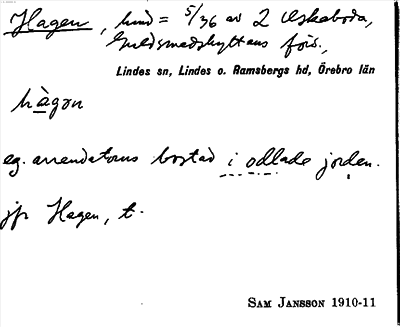 Hagen, hmd = 5/36 av 2 Uskeboda,
Guldsmedshyttans förs.,
Lindes sn, Lindes o. Ramsbergs hd, Örebro län
hàgon
eg. arrendatorns bostad i odlade jorden.
jfr Hagen, t.
SAM JANSSON 1910-11